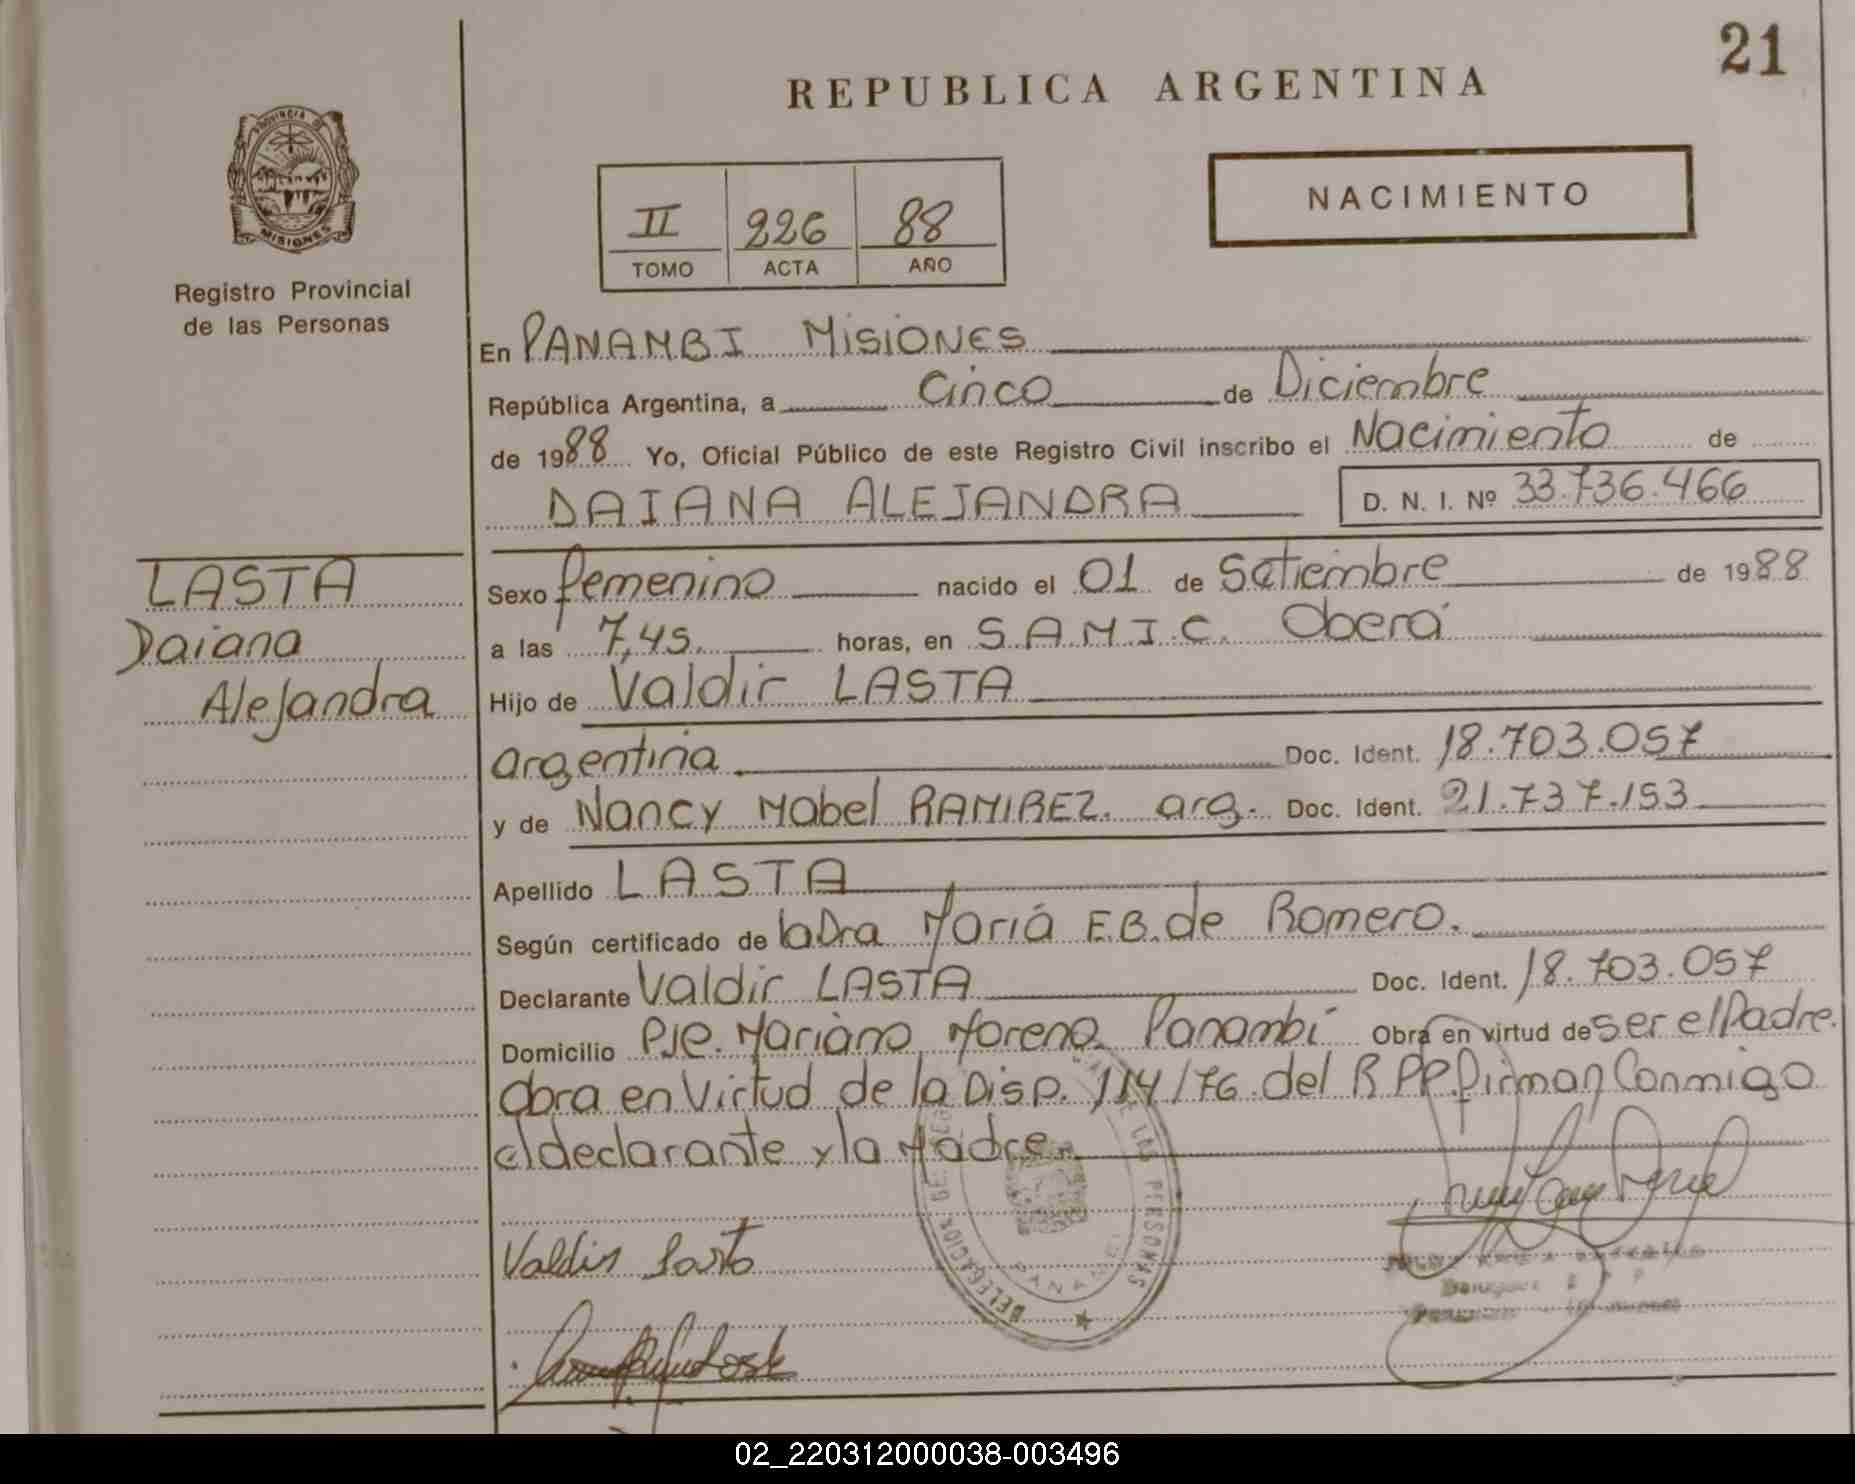 21
REPUBLICA ARGENTINA
PROVINCIA DE
MISIONES
Registro Provincial
de las Personas
NACIMIENTO
II 226 88
TOMO ACTA AÑO
En PANAMBI MISIONES
República Argentina, a Cinco de Diciembre
de 1988 Yo, Oficial Público de este Registro Civil inscribo el Nacimiento de
DAIANA ALEJANDRA D. N. I. Nº 33.736.466
LASTA
Daiana
Alejandra
Sexo femenino nacido el 01 de Setiembre de 1988
a las 7,45. horas, en S.A.M.I.C. Oberá
Hijo de Valdir LASTA
argentina Doc. Ident. 18.703.057
y de Nancy Mabel RAMIREZ. arg. Doc. Ident. 21.737.153
Apellido LASTA
Según certificado de la Dra María E.B. de Romero.
Declarante Valdir LASTA Doc. Ident. 18.703.057
Domicilio Pje. Mariano Moreno Panambí Obra en virtud de ser el Padre.
Obra en Virtud de la Disp. 114/76 del R PP. firman Conmigo
el declarante y la Madre
DELEGACION DE LAS PERSONAS
PANAMBI
Valdir Lasta
02_220312000038-003496